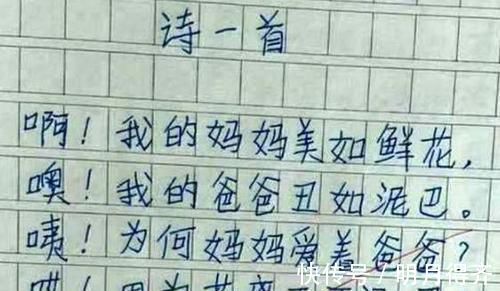 诗一首
啊！我的妈妈美如鲜花，
噢！我的爸爸丑如泥巴。
咦！为何妈妈爱着爸爸？
快传号/明月得齐